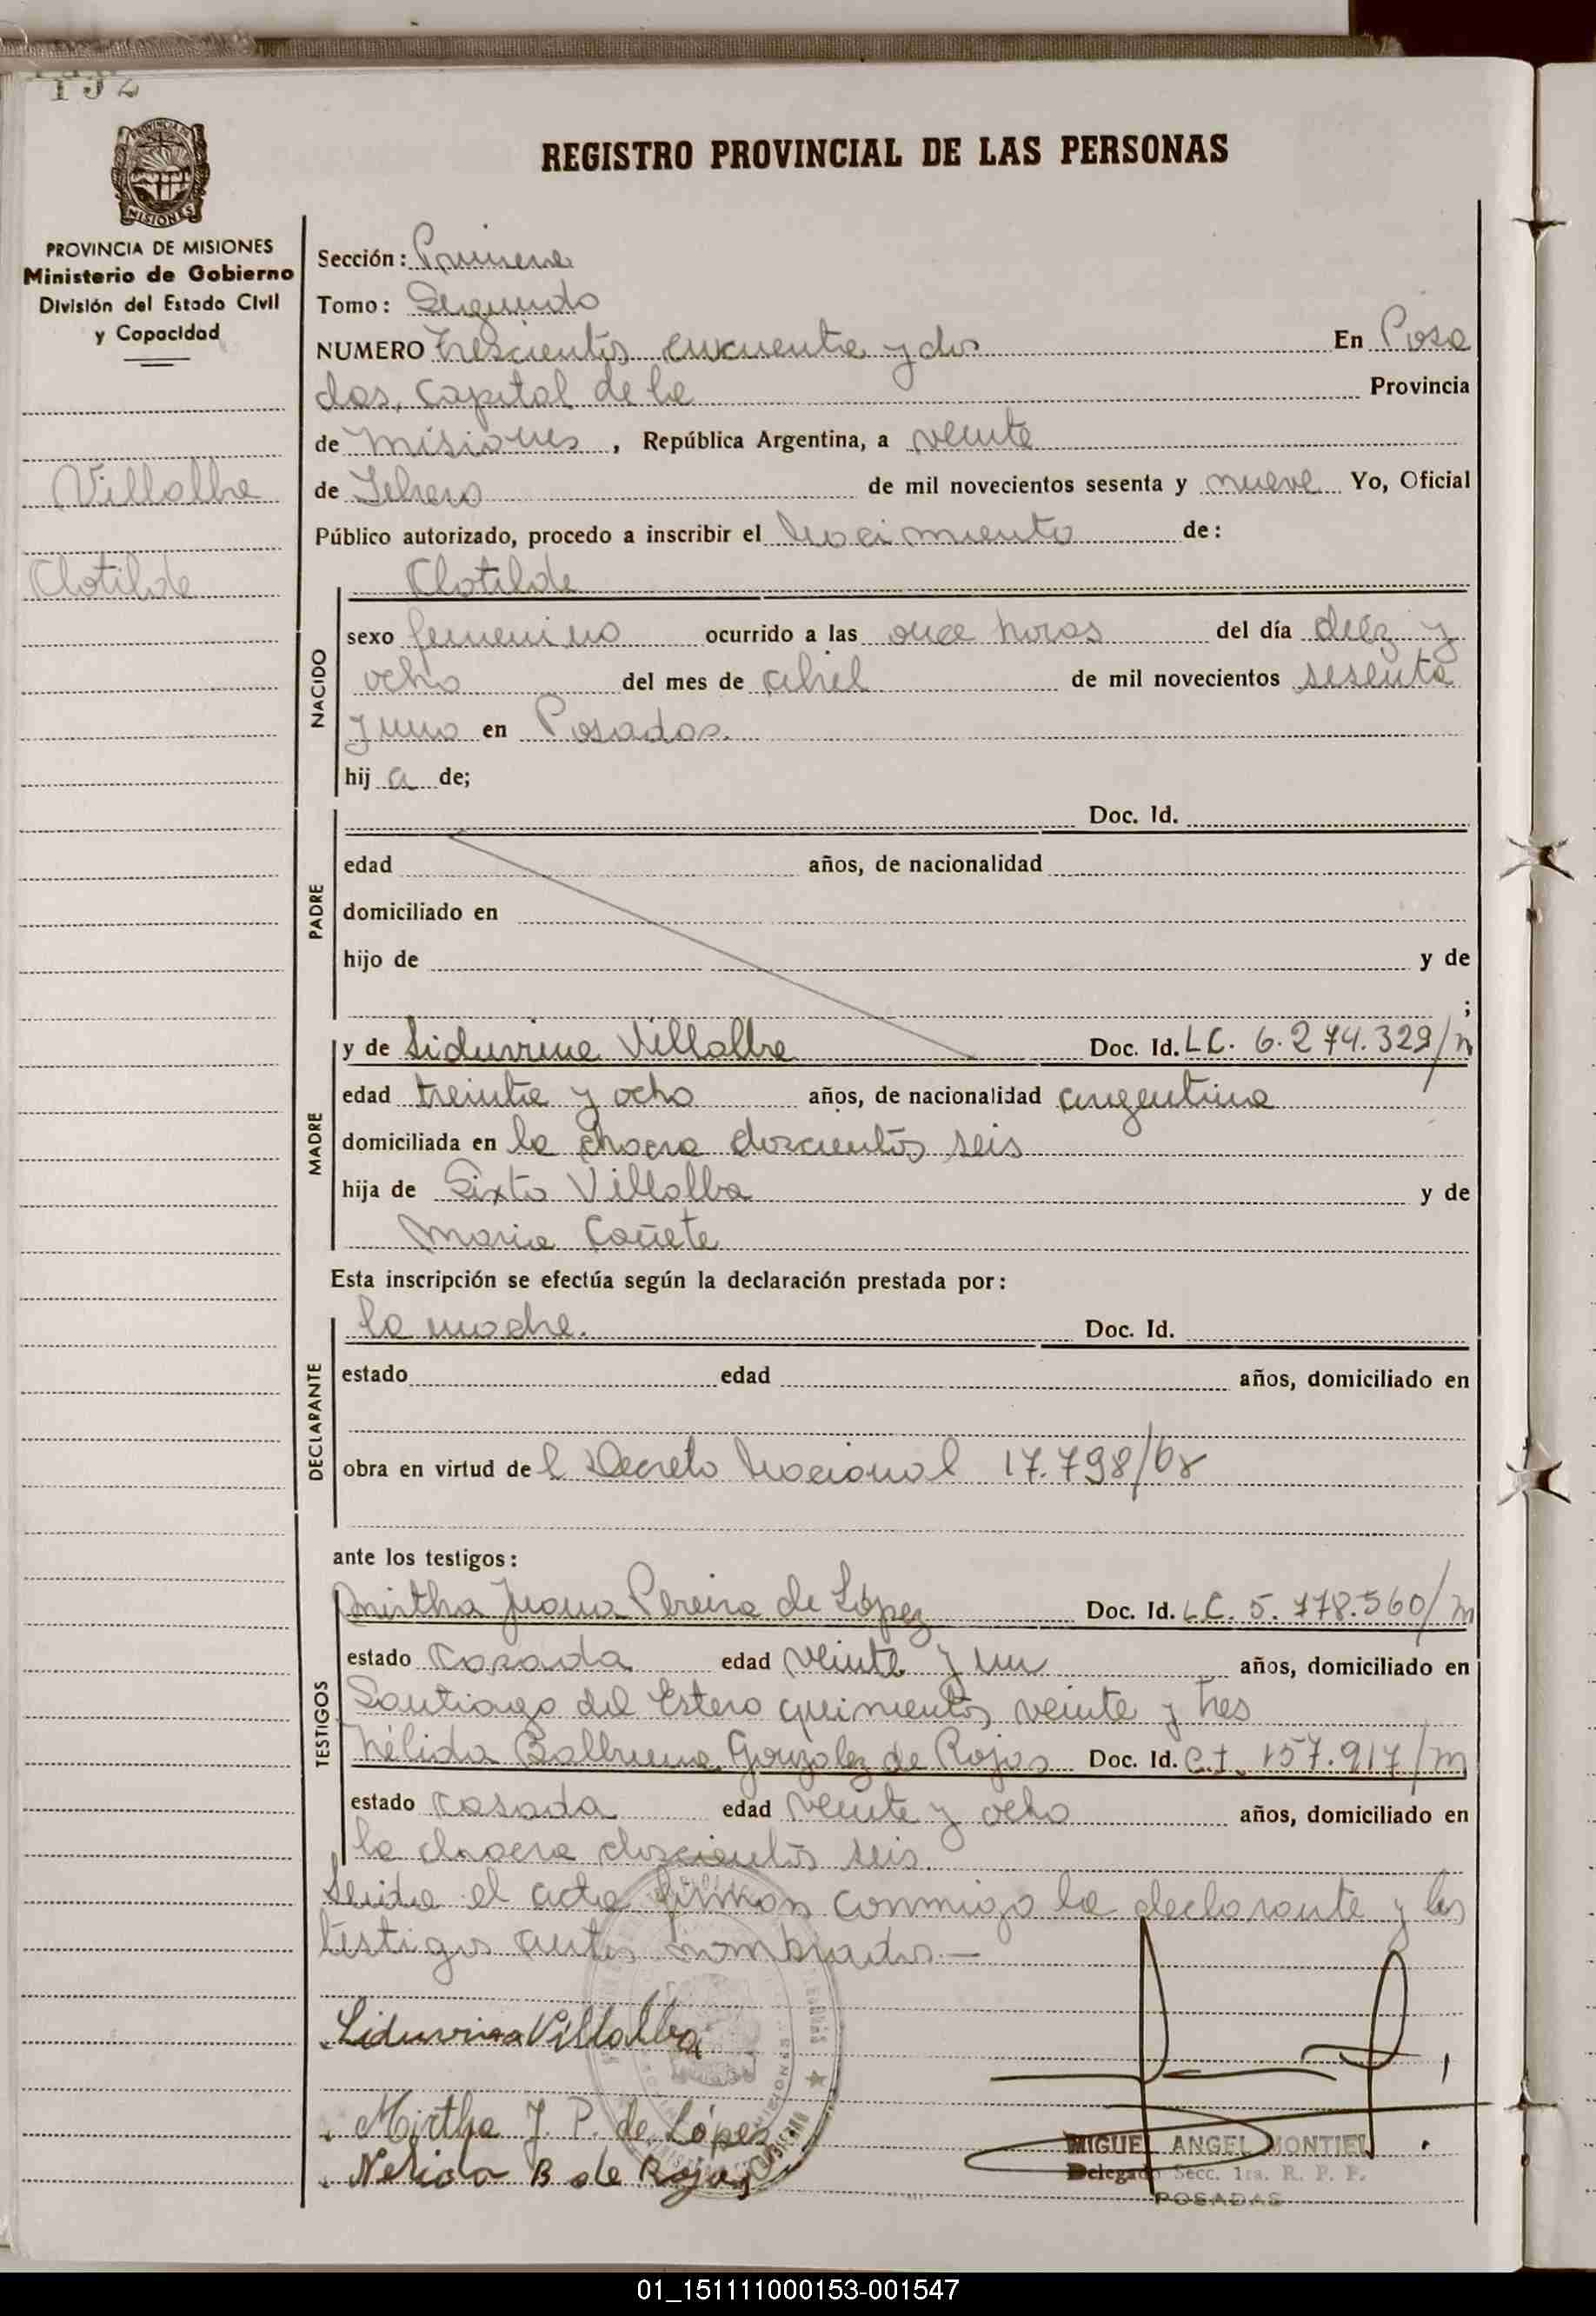 152
REGISTRO PROVINCIAL DE LAS PERSONAS
PROVINCIA DE MISIONES
Ministerio de Gobierno
División del Estado Civil
y Capacidad
Villalba
Clotilde
Sección: Primera
Tomo: Segundo
NUMERO trescientos cincuenta y dos En Posa
das, capital de la Provincia
de Misiones, República Argentina, a veinte
de Febrero de mil novecientos sesenta y nueve Yo, Oficial
Público autorizado, procedo a inscribir el nacimiento de:
Clotilde
NACIDO
sexo femenino ocurrido a las once horas del día diez y
ocho del mes de abril de mil novecientos sesenta
y uno en Posadas.
hij a de;
PADRE
Doc. Id.
edad años, de nacionalidad
domiciliado en
hijo de y de
;
MADRE
y de Liduvina Villalba Doc. Id. L.C. 6.274.329/m
edad treinta y ocho años, de nacionalidad argentina
domiciliada en la chacra doscientos seis
hija de Sixto Villalba y de
Maria Cañete
Esta inscripción se efectúa según la declaración prestada por:
DECLARANTE
la madre. Doc. Id.
estado edad años, domiciliado en
obra en virtud de l Decreto Nacional 17.798/68
ante los testigos:
TESTIGOS
Mirtha Juana Pereira de López Doc. Id. L.C. 5.778.560/m
estado casada edad veinte y un años, domiciliado en
Santiago del Estero quinientos veinte y tres
Nélida Balbuena Gonzalez de Rojas Doc. Id. C.I. 157.917/m
estado casada edad veinte y ocho años, domiciliado en
la chacra doscientos seis.
Leida el acta firman conmigo la declarante y los
testigos antes nombrados.—
Liduvina Villalba
Mirtha J. P. de López
Nelida B de Rojas
MIGUEL ANGEL MONTIEL
Delegado Secc. 1ra. R. P. P.
POSADAS
01_151111000153-001547